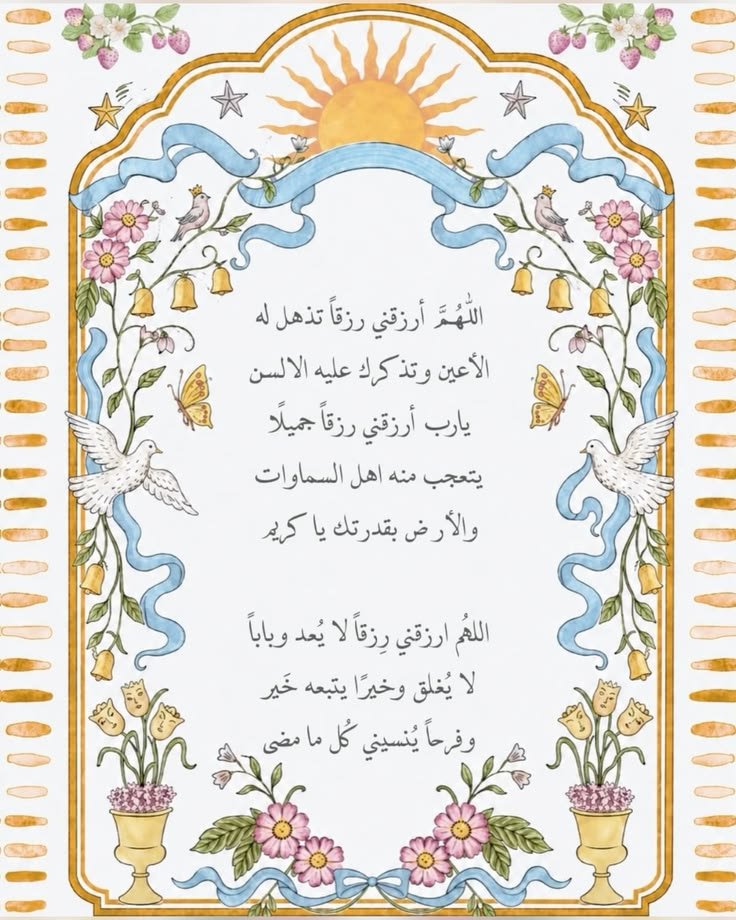 اللّٰهُمَّ أرزقني رزقاً تذهل له
الأعين وتذكرك عليه الالسن
يارب أرزقني رزقاً جميلًا
يتعجب منه اهل السماوات
والأرض بقدرتك يا كريم
اللهُم ارزقني رِزقاً لا يُعد وباباً
لا يُغلق وخيرًا يتبعه خَير
وفرحاً يُنسيني كُل ما مضى